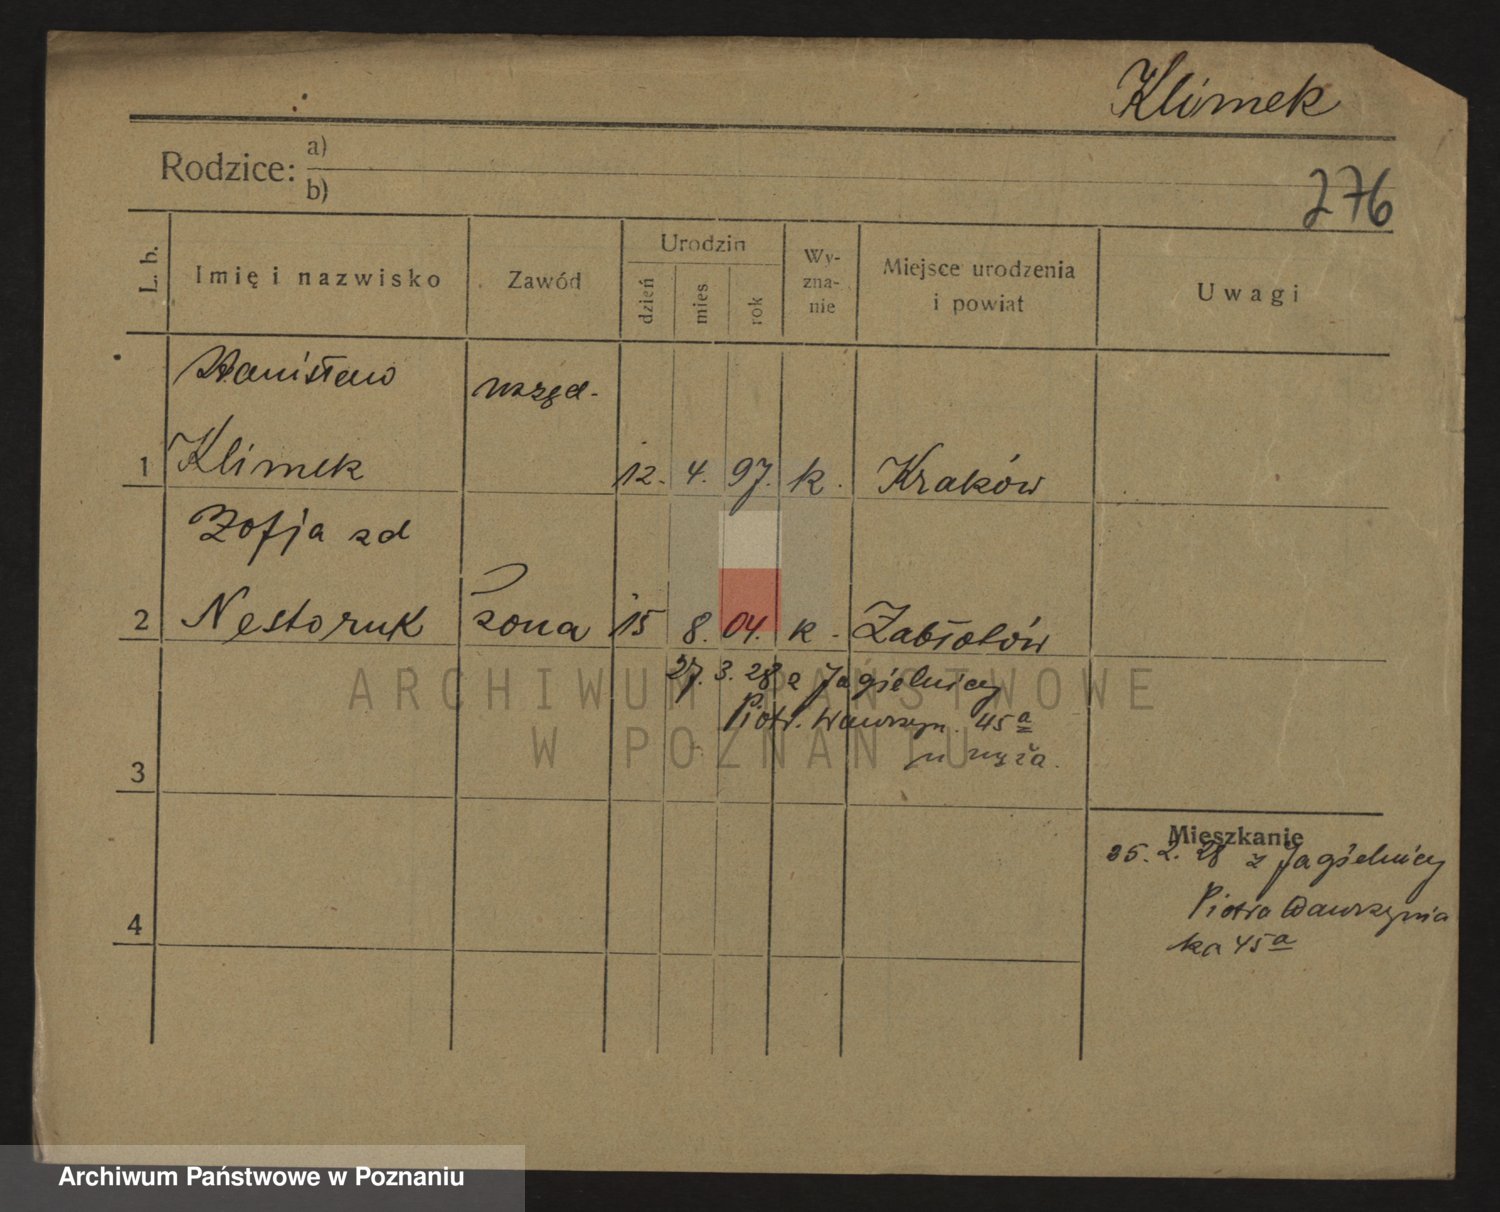 Klimek
Rodzice: a)
b)
276
L. b.
Imię i nazwisko
Zawód
Urodzin
dzień
mies
rok
Wy-
zna-
nie
Miejsce urodzenia
i powiat
Uwagi
Stanisław
urzęd.
1 Klimek 12. 4. 97. k. Kraków
Zofja zd
2 Nestoruk żona 15 8. 04. k. Zabłotów
27. 3. 28 z Jagielnicy
Piotr. Wawrzyn. 45a
u męża.
3
Mieszkanie
25. 2. 28 z Jagielnicy
Piotra Wawrzynia
ka 45a
4
ARCHIWUM PAŃSTWOWE
W POZNANIU
Archiwum Państwowe w Poznaniu